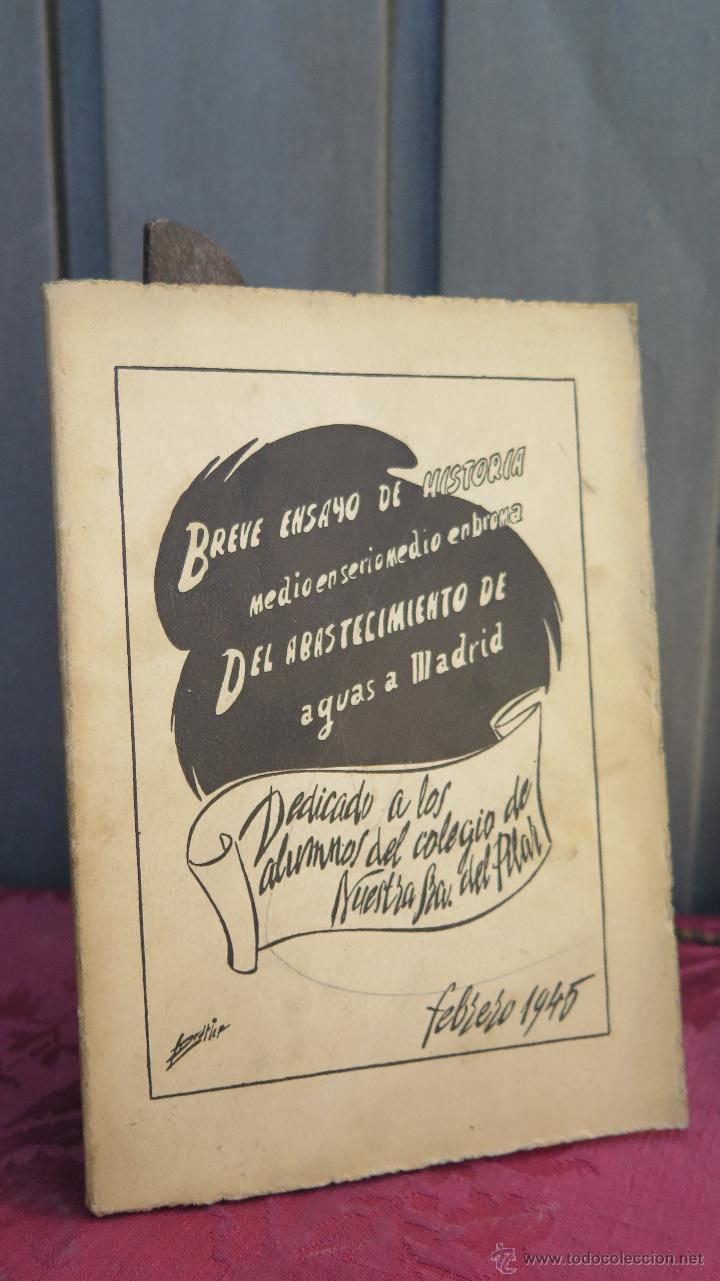 BREVE ENSAYO DE HISTORIA
medio en serio medio en broma
DEL ABASTECIMIENTO DE
aguas a Madrid
Dedicado a los
alumnos del colegio de
Nuestra Sra. del Pilar
febrero 1945
www.todocoleccion.net